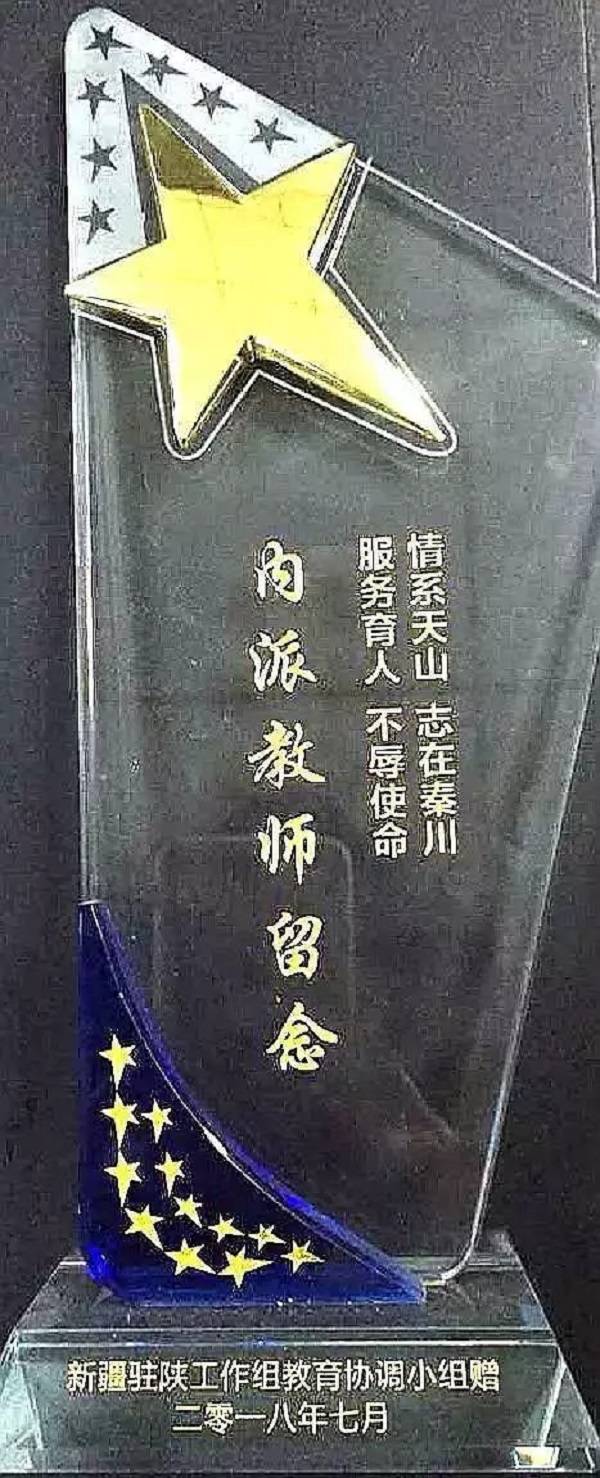 情系天山 志在秦川
服务育人 不辱使命
内派教师留念
新疆驻陕工作组教育协调小组赠
二零一八年七月